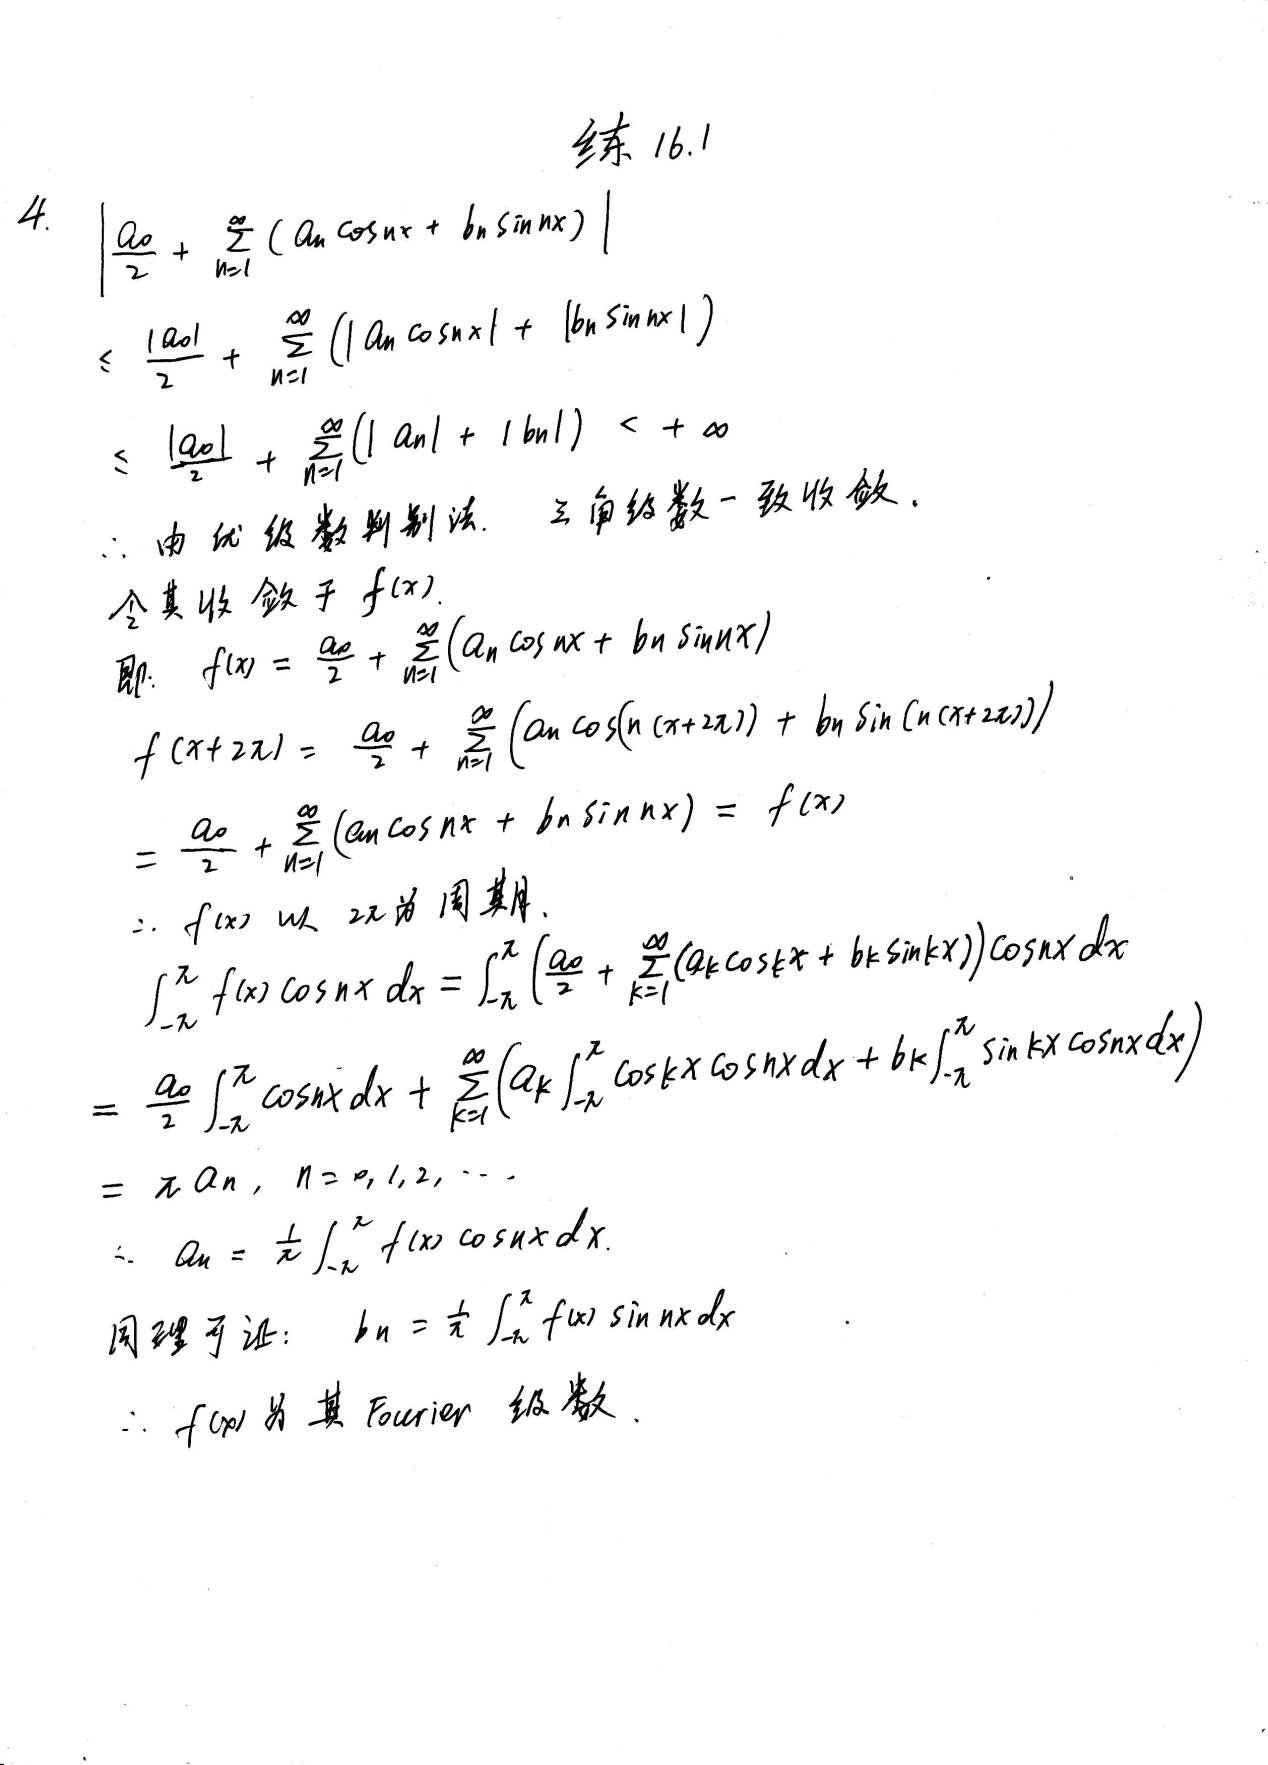 练 16.1
4. |a₀/2 + ∑_{n=1}^{∞} (aₙ cosnx + bₙ sinnx)|
≤ |a₀|/2 + ∑_{n=1}^{∞} (|aₙ cosnx| + |bₙ sinnx|)
≤ |a₀|/2 + ∑_{n=1}^{∞} (|aₙ| + |bₙ|) < +∞
∴ 由优级数判别法. 三角级数一致收敛.
令其收敛于 f(x).
即: f(x) = a₀/2 + ∑_{n=1}^{∞} (aₙ cosnx + bₙ sinnx)
f(x+2π) = a₀/2 + ∑_{n=1}^{∞} (aₙ cos(n(x+2π)) + bₙ sin(n(x+2π)))
= a₀/2 + ∑_{n=1}^{∞} (aₙ cosnx + bₙ sinnx) = f(x)
∴ f(x) 以 2π 为周期.
∫_{-π}^{π} f(x) cosnx dx = ∫_{-π}^{π} (a₀/2 + ∑_{k=1}^{∞} (a_k coskx + b_k sinkx)) cosnx dx
= a₀/2 ∫_{-π}^{π} cosnx dx + ∑_{k=1}^{∞} (a_k ∫_{-π}^{π} coskx cosnx dx + b_k ∫_{-π}^{π} sinkx cosnx dx)
= π aₙ, n=0,1,2,...
∴ aₙ = 1/π ∫_{-π}^{π} f(x) cosnx dx.
同理可证: bₙ = 1/π ∫_{-π}^{π} f(x) sinnx dx
∴ f(x) 为其 Fourier 级数.